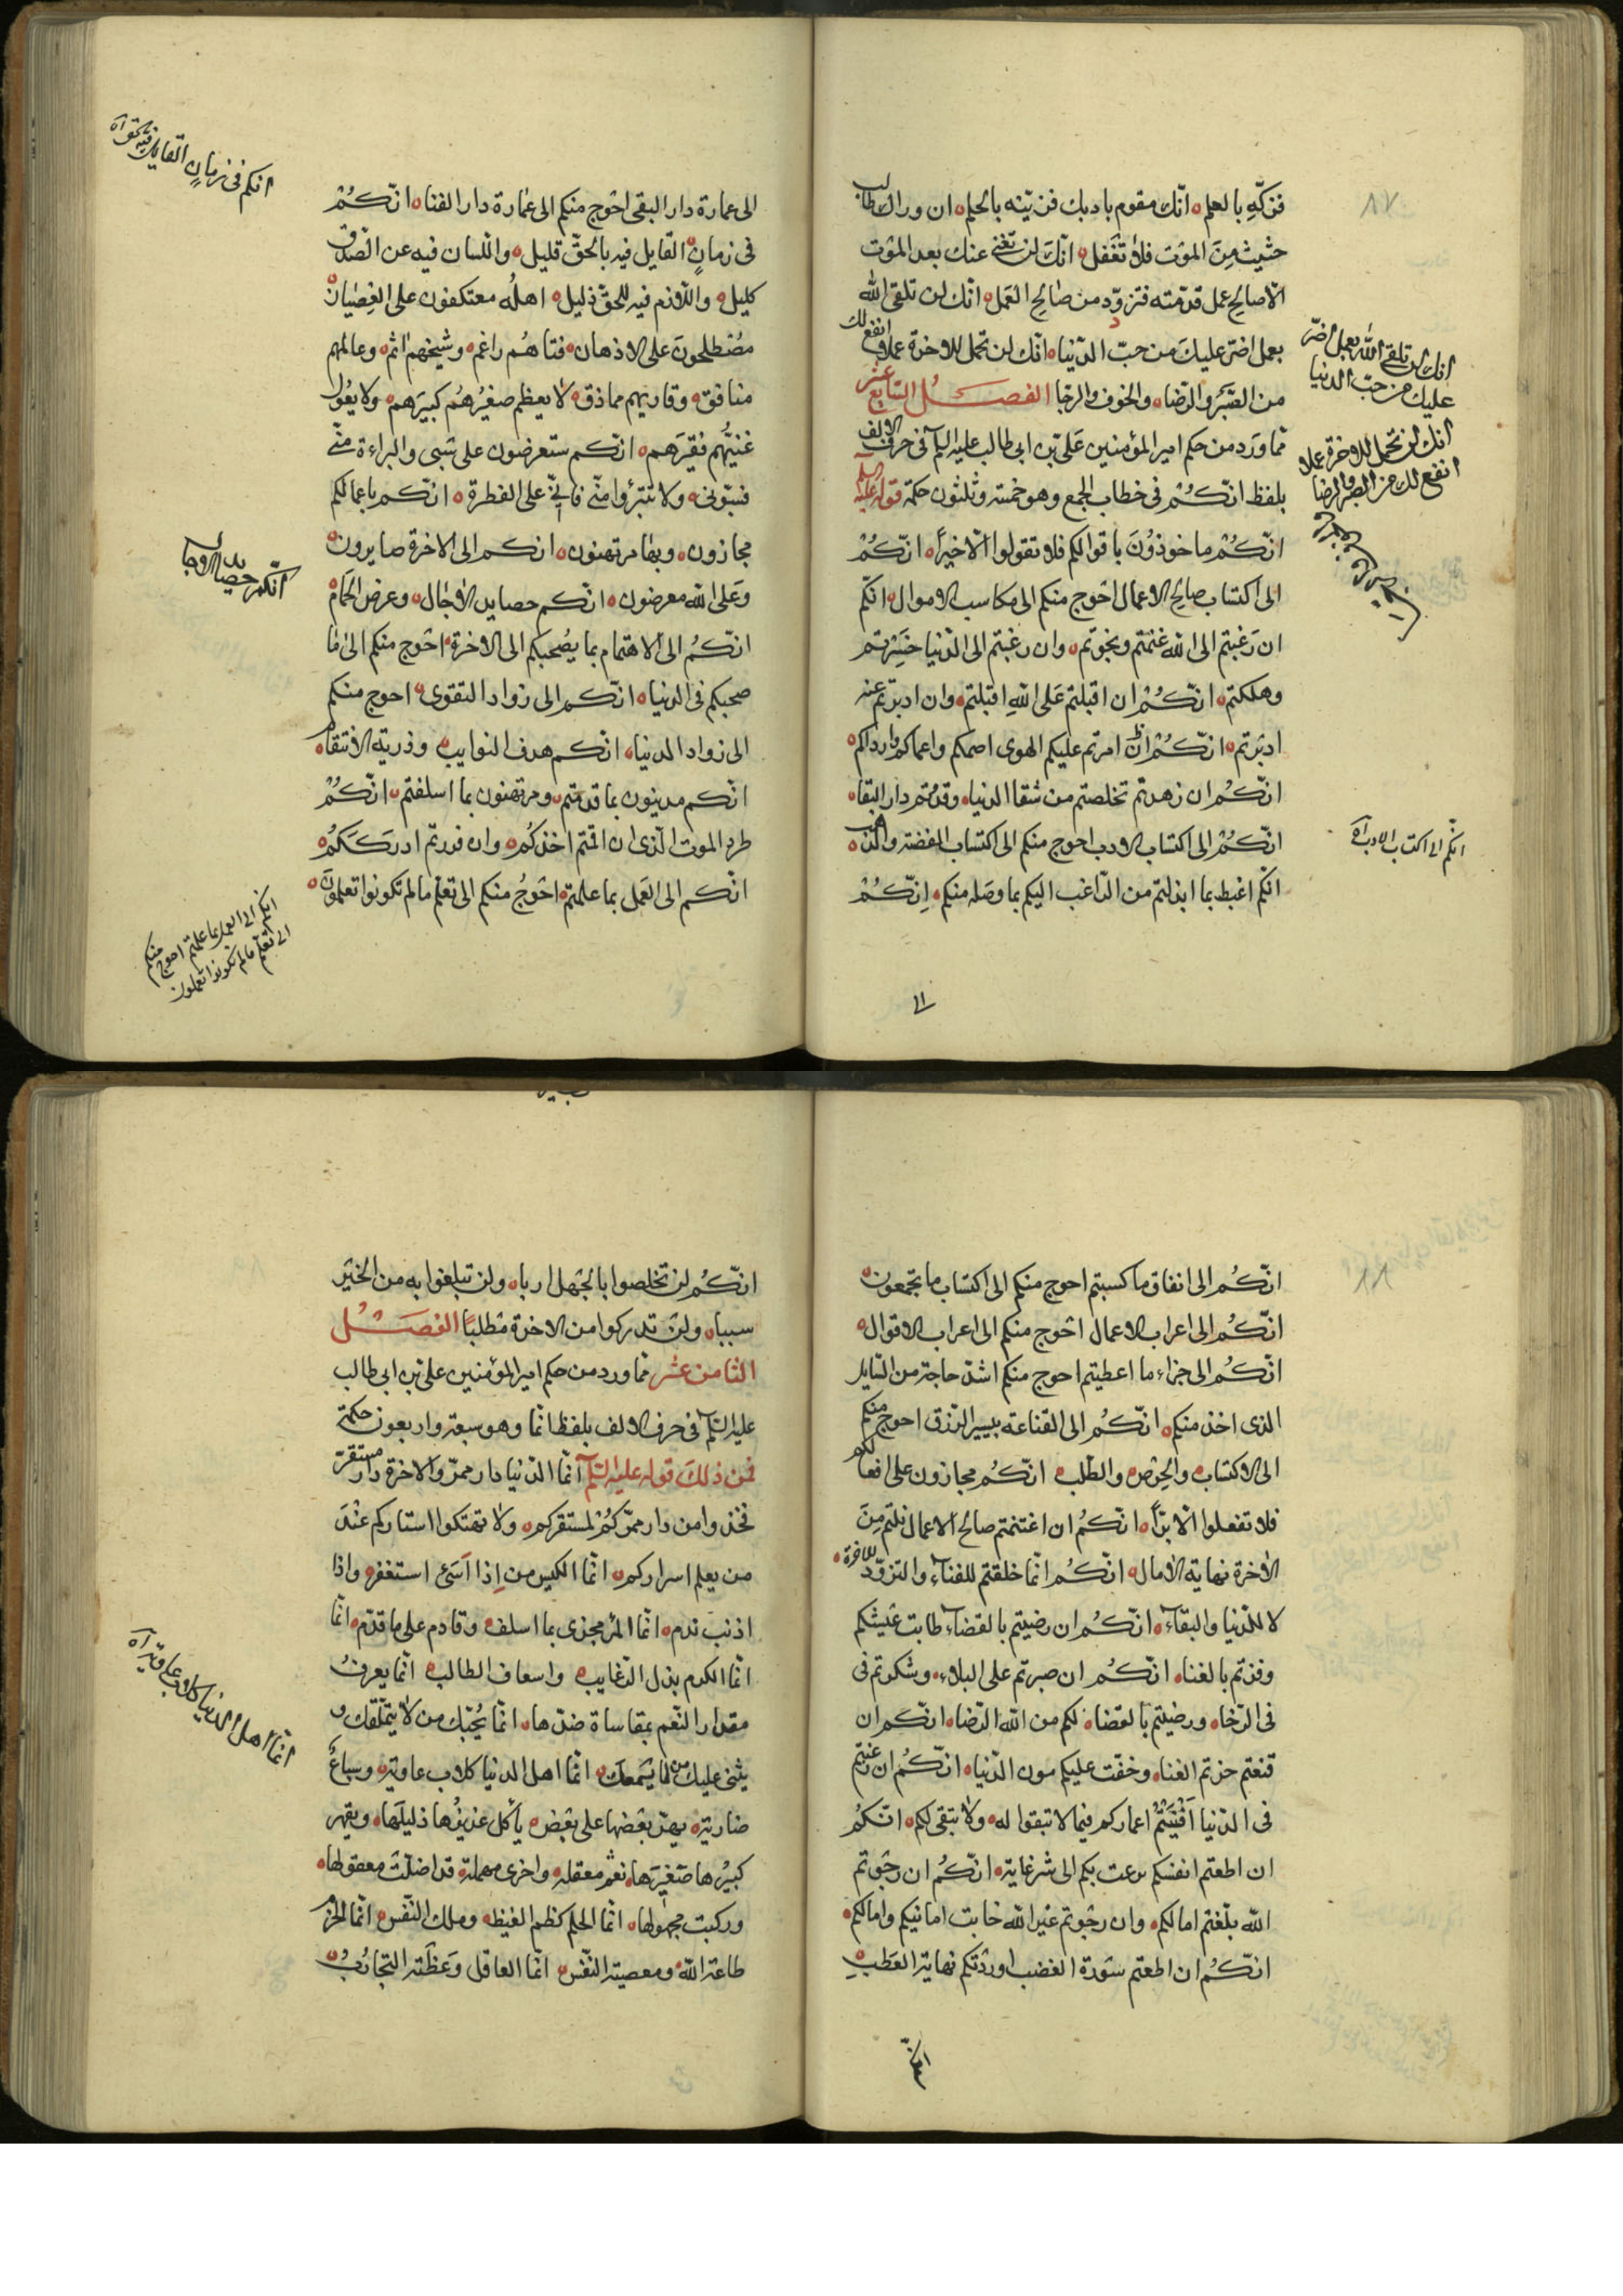 ٨٧
فزكّه بالعلم انّك مقوم بادبك فزيّنه بالحلم ان وراك طالب
حثيث مِنَ الموْت فلا تغفل انّكَ لن تغنى عنك بعد الموْت
الّا صالح عمل قدّمته فتزوّد من صٰالح العَمل انّك لن تلقى الله
بعمل اضرّ عليكَ من حبّ الدّنيا انّك لن تحمل للاخرة عملا انفع لك
من الصّبر والرّضا والخوف والرّجا الفصـــل السّابع عشر
ممّا وَرَد من حكم امير المؤمنين عَلى بن ابى طالب عليه السلم فى حرف الالف
بلفظ انّكُمْ فى خطاب الجمع وهو خمسة وثلثون حكمة قوله عليه السلم
انّكُمْ ماخوذوُنَ باقوالكم فلا تقولوا الّا خيراً انّكُمْ
الى اكتساب صالح الاعمال احْوج منكم الى مكاسب الاموال انّكم
ان رَغبتم الى الله غنمتم ونجوتم وان رغبتم الى الدّنيا خَسِرتم
وهلكتم انّكُمْ ان اقبلتم عَلى اللّهِ اقبلتم وان ادبرتم عنه
ادبَرتم انّكُمْ انْ امرتم عليكم الهوى اصمكم واعماكم وارداكم
انّكُم ان زهدتم تخلصتم من شقا الدنيا وفزتم بدار البقاء
انّكُمْ الى اكتساب الادب احوج منكم الى اكتساب الفضة والذهب
انكم اغبط بما ابذلتم من الرّاغب اليكم بما وصَله منكم اِنّكُمْ
انك لن تلقى الله بعمل اضرّ
عليك من حبّ الدنيا
انك لن تحمل للاخرة عملا
انفع لك من الصبر والرضا
انكم الى اكتساب الادب آه
الى
الى عمارة دار البقى احْوج منكم الى عمٰارة دار الفناء انّكُمْ
فى زمانٍ القايل فيه بالحقّ قليل واللسان فيه عن الصّدق
كليل واللّازم فيه للحقّ ذليل اهلُه معتكفون على العِصْيٰان
مصْطلحونَ على الادهان فتاهُم راغم وشيخهم اثم وعالمهم
منافق وقاريهم مماذق لا يعظم صغيرُهُم كبيرَهم ولا يعُول
غنيُّهم فقيرَهم انّكم ستعرضون على سَبى والبراءة منّى
فسبّونى ولا تتبرّؤا منّى فانّى على الفطرة انّكم باعمالكم
مجازون وبهٰا مرتهنون انكم الى الاخرة صايرون
وَعَلى الله معرضون انّكم حصايد الاٰجال وعرض الحَمام
انّكُم الى الاهتمام بما يصْحبكم الى الاخرة احْوج منكم الى مٰا
صحبكم فى الدنيا انّكم الى زواد التقوى احوج منكم
الى زواد الدنيا انّكم هدف النوايب وذرية الاسقام
انّكم مدينون بما قدمتم ومرتهنون بما اسلفتم انّكُمْ
طرد الموت الّذى ان اقمتم اخذكُم وان فررتم ادرَكَكُم
انّكم الى العَمل بما علمتم احْوجُ منكم الى تعلم ما لم تكونوا تعلمونَ
انكم فى زمانٍ القايل فيه بالحق آه
انّكم حصايد الاجال
انكم الى العمل بما علمتم احوج منكم
الى تعلّم ما لم تكونوا تعلمون
٨٨
انّكُم الى انفاق ما كسبتم احوج منكم الى اكتساب ما تجمعون
انّكُم الى اعراب الاعمال احْوج منكم الى اعراب الاقوال
انّكُم الى جزاء ما اعطيتم احوج منكم اشدّ حاجة من السّايل
الذى اخذ منكم انّكُم الى القناعة بيسير الرّزق احوج منكم
الى الاكتساب والحِرْص والطّلب انّكُم مجازون على افعالكم
فلا تفعلوا الّا برّاً انّكُم ان اغتنمتم صالح الاعمال نلتم مِنَ
الاٰخرة نهاية الاٰمال انّكُم انّما خلقتم للفناء والتزوّد للاخرة
لا للدّنيا والبقاء انّكُم ان رضيتم بالقضاء طابت عَيشكم
وفزتم بالغنا انّكُم ان صبرتم على البلاء وشكرتم فى
فى الرّخا ورضيتم بالقضا لكم من الله الرّضا انّكم ان
قنعتم حزتم الغنا وخفّت عليكم مون الدّنيا انّكُم ان رغبتم
فى الدّنيا اَفْنَيْتُمْ اعماركم فيما لا تبقوا له ولا يتبقى لكم انّكُم
ان اطعتم انفسكم نزعت بكم الى شر غاية انّكُم ان رجَوتم
الله بلغتم امالكم وان رجَوتم غَير الله خابت امانيكم وامالكم
انّكُم ان اطعتم سَورَة الغضب اوردَتكم نهاية العَطب
انّكم
انّكُم لن تخلصوا بالجْهل اربا ولن تبلغوا به من الخيْر
سببا ولنْ تدركوا من الاخرة مطلبًا الفصَـــل
الثامن عشر ممّا ورد من حكم امير المؤمنين على بن ابى طالب
عليه السّلم فى حرف الالف بلفظ انّما وهو سبعة واربعون حكمة
فمن ذٰلكَ قوله عليْه السّلم انّما الدّنيا دار ممرّ والاخرة دار مستقرّ
فخذوا من دار ممرّكُمْ لمستقركم ولا تهتكوا استاركم عنْدَ
من يعلم اسراركم انّما الكيس من اِذا اَسَئ استغفر واذا
اذنب ندم انّما المرْ مجزى بما اسلف وقادم على ما قدّم انّما
انّما الكرم بذل الرّغايب واسعاف الطالب انّما يعرفُ
مقدار النّعم بمقاساة ضدّها انّما يُحبّك من لا يتملّقك و
يثنى عليكَ من لا يسْمعكَ انّما اهل الدنيا كلاب عاوية وسباعٌ
ضارية يهرّ بعْضها على بعْض يأكل عزيزُها ذليلَها ويقهر
كبيرُها صَغيرَها نعم معقلة واخرى مهملة قد اضلّت معقولها
وركبت مجهولها انّما الحلم كظم الغيظ وملك النّفس انّما الحزم
طاعة الله ومعصية النّفس انّما العاقل وَعظَته التجاربُ
انّما اهل الدنيا كلاب عاوية آه